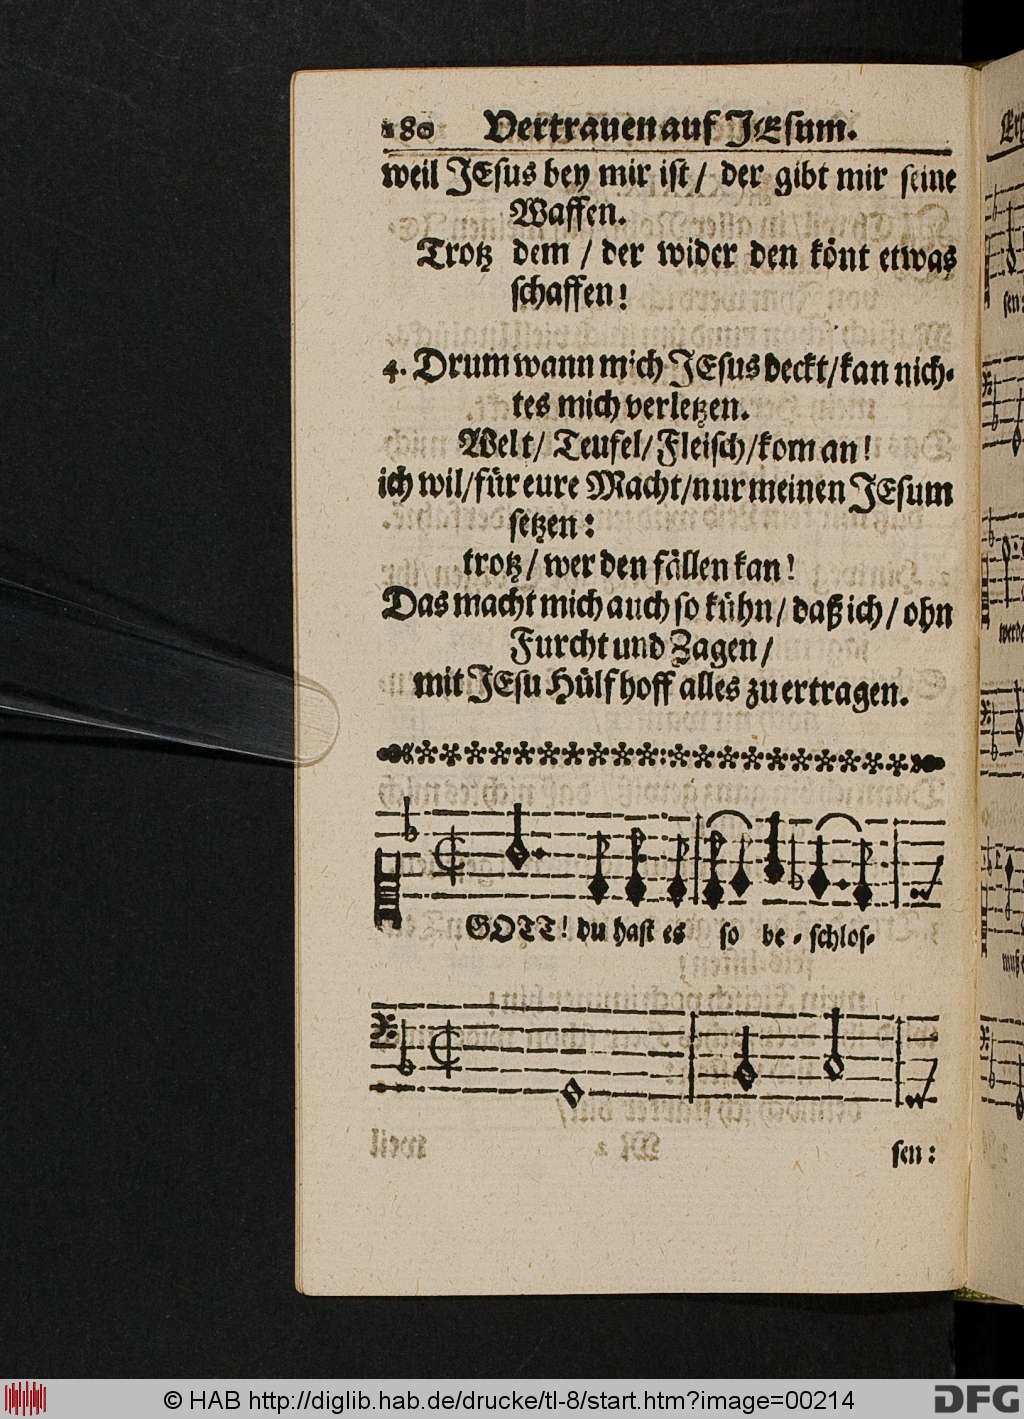 180 Vertrauen auf JEsum.
weil JEsus bey mir ist / der gibt mir seine
Waffen.
Trotz dem / der wider den könt etwas
schaffen!
4. Drum wann mich JEsus deckt / kan nich-
tes mich verletzen.
Welt / Teufel / Fleisch / kom an!
ich wil / für eure Macht / nur meinen JEsum
setzen:
trotz / wer den fällen kan!
Das macht mich auch so kühn / daß ich / ohn
Furcht und Zagen /
mit JEsu Hülf hoff alles zu ertragen.
GOTT! du hast es so be-schlos-
sen:
© HAB http://diglib.hab.de/drucke/tl-8/start.htm?image=00214
DFG